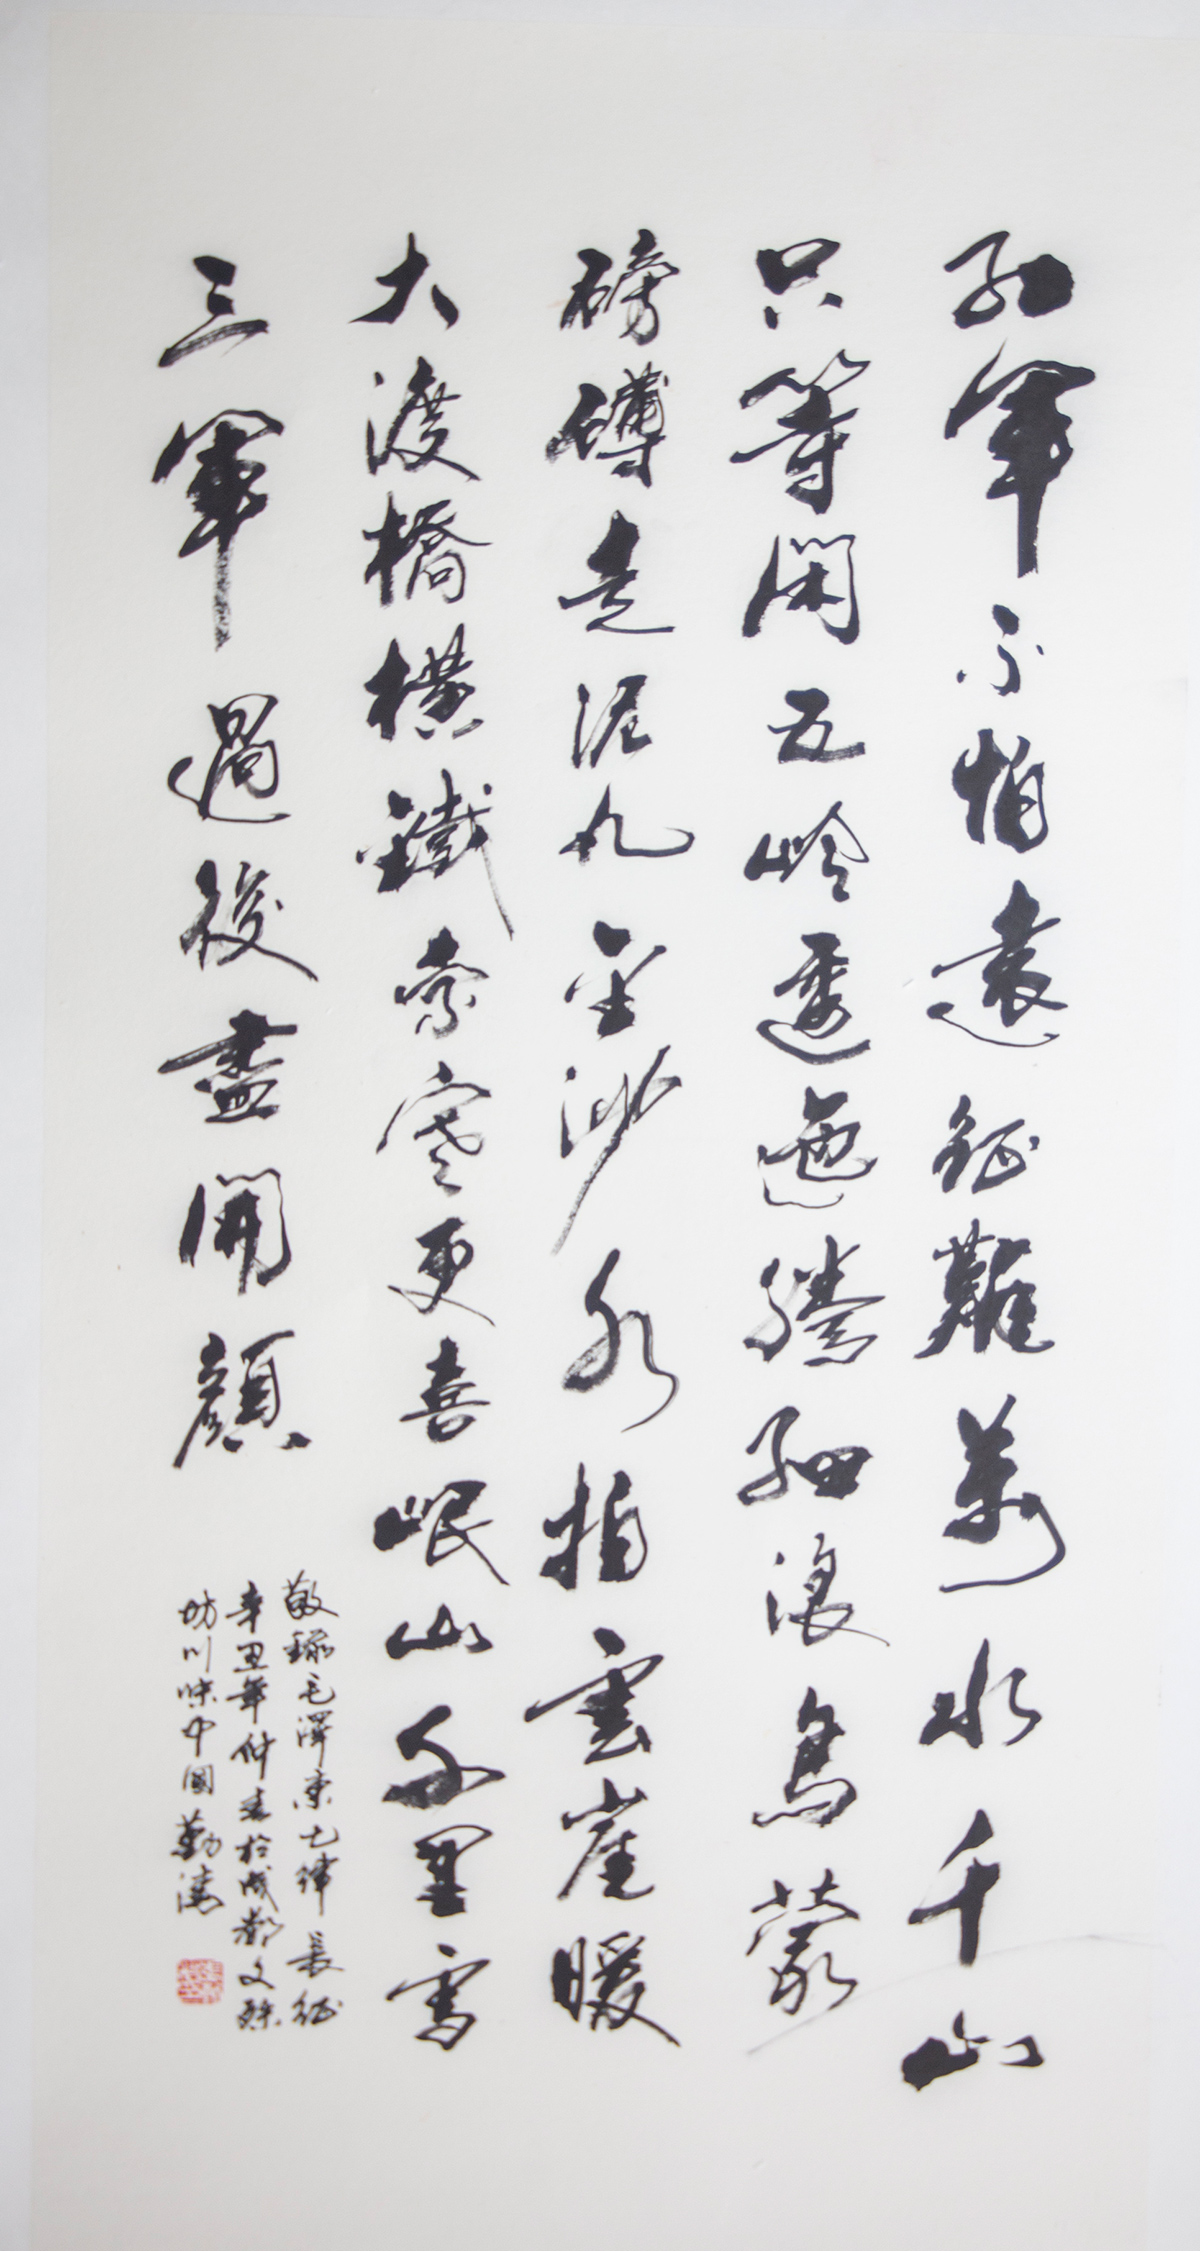 紅軍不怕遠征難萬水千山
只等閑五嶺逶迤騰細浪烏蒙
磅礴走泥丸金沙水拍雲崖暖
大渡橋橫鐵索寒更喜岷山千里雪
三軍過後盡開顏
敬錄毛澤東七律長征
辛丑年仲春於成都文殊
坊川味中國勤濤